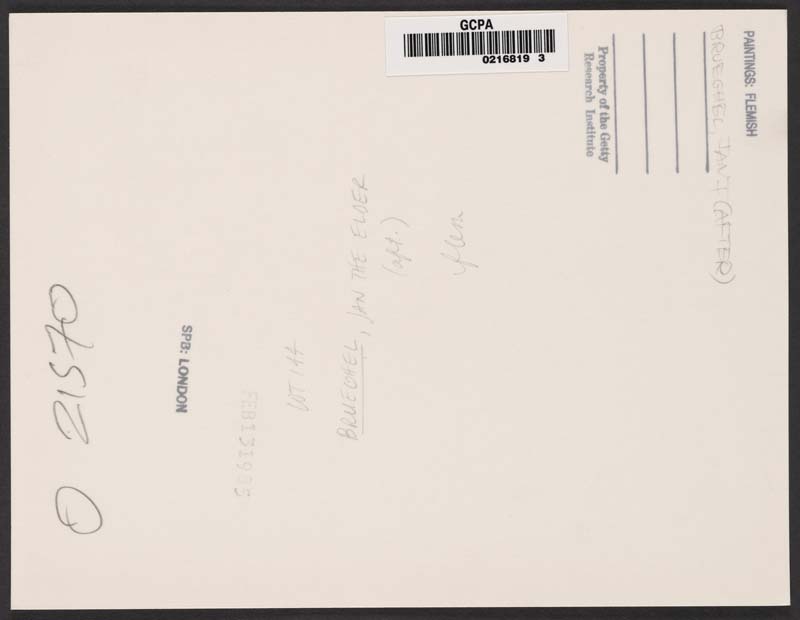 GCPA
0216819 3
PAINTINGS: FLEMISH
BRUEGHEL, JAN I (AFTER)
Property of the Getty
Research Institute
BRUEGHEL, JAN THE ELDER
(aft.)
flem
LOT 144
FEB 13 1985
SPB: LONDON
O 21570